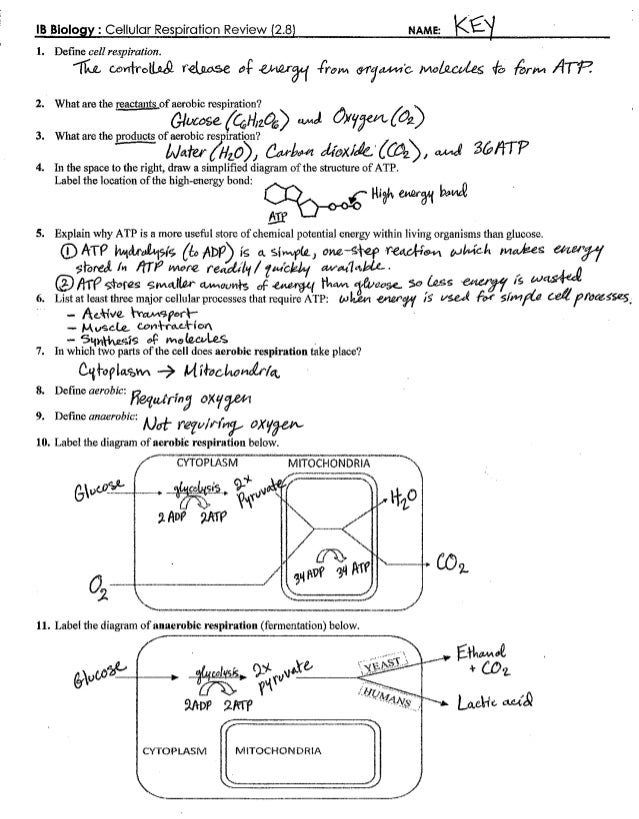 IB Biology : Cellular Respiration Review (2.8) NAME: KEY
1. Define cell respiration.
The controlled release of energy from organic molecules to form ATP.
2. What are the reactants of aerobic respiration?
Glucose (C6H12O6) and Oxygen (O2)
3. What are the products of aerobic respiration?
Water (H2O), Carbon dioxide (CO2), and 36ATP
4. In the space to the right, draw a simplified diagram of the structure of ATP.
Label the location of the high-energy bond:
High energy bond
ATP
5. Explain why ATP is a more useful store of chemical potential energy within living organisms than glucose.
① ATP hydralysis (to ADP) is a simple, one-step reaction which makes energy
stored in ATP more readily/quickly available.
② ATP stores smaller amounts of energy than glucose so less energy is wasted
6. List at least three major cellular processes that require ATP: when energy is used for simple cell processes.
- Active transport
- Muscle contraction
- Synthesis of molecules
7. In which two parts of the cell does aerobic respiration take place?
Cytoplasm → Mitochondria
8. Define aerobic: Requiring oxygen
9. Define anaerobic: Not requiring oxygen
10. Label the diagram of aerobic respiration below.
CYTOPLASM MITOCHONDRIA
Glucose glycolysis 2x Pyruvate H2O
2 ADP 2ATP
34 ADP 34 ATP CO2
O2
11. Label the diagram of anaerobic respiration (fermentation) below.
Glucose glycolysis 2x pyruvate YEAST Ethanol + CO2
2ADP 2ATP HUMANS Lactic acid
CYTOPLASM MITOCHONDRIA